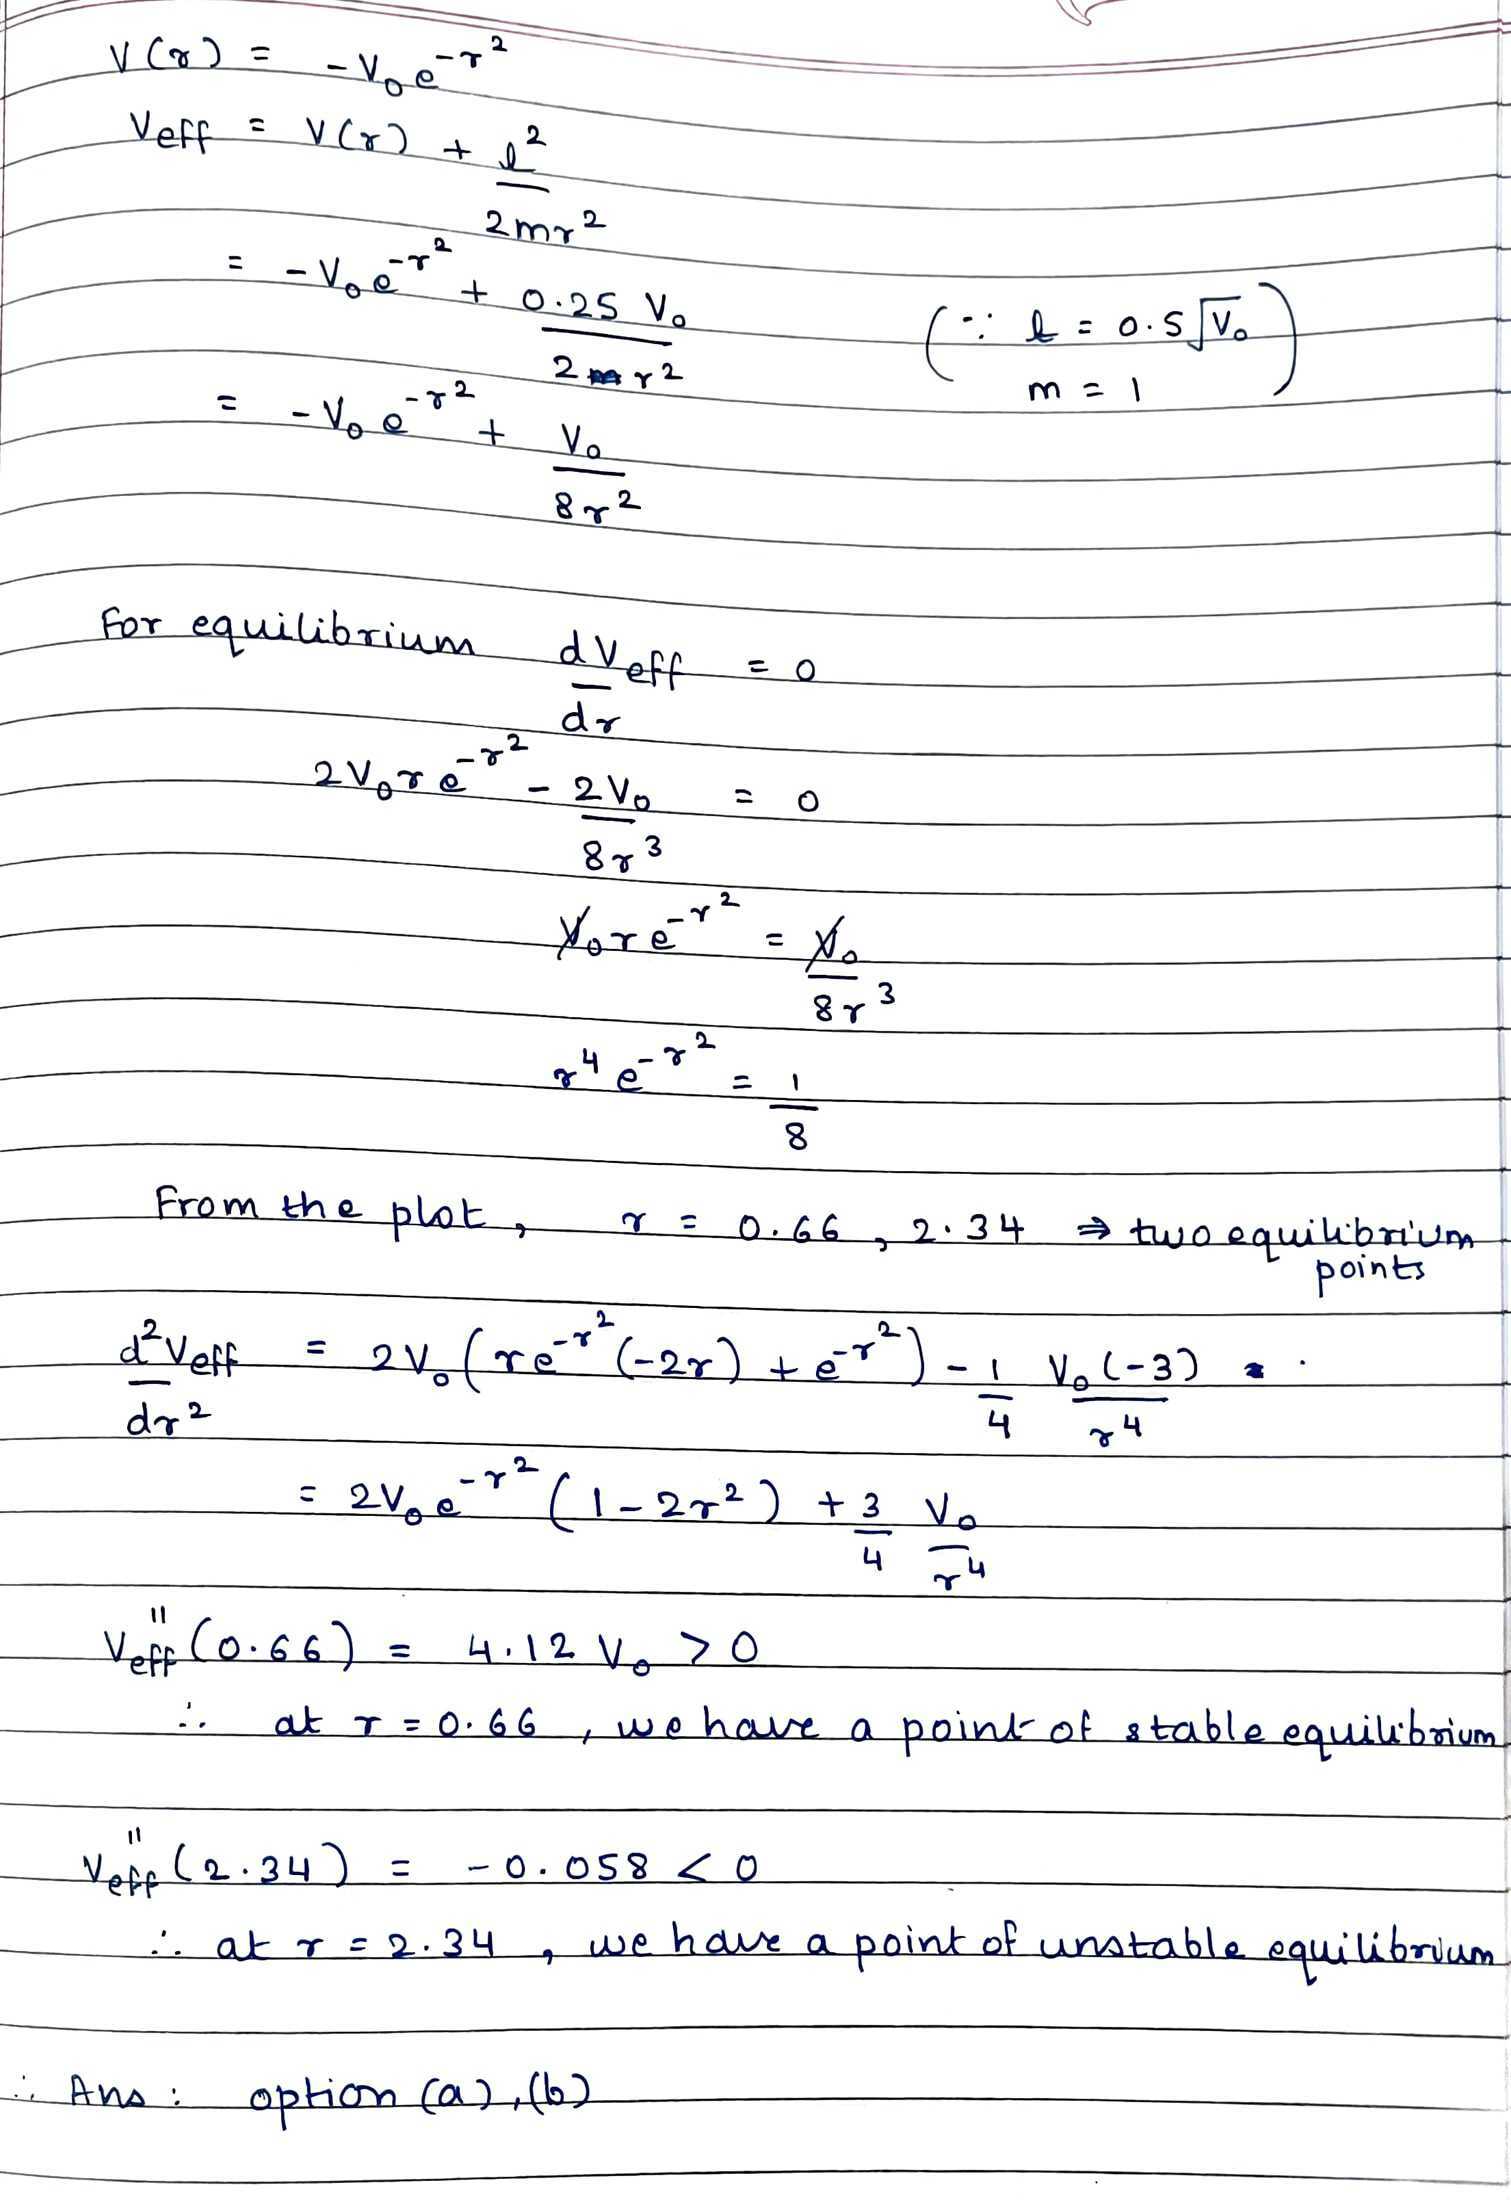 V(r) = -V₀e^{-r²}
Veff = V(r) + l²/2mr²
= -V₀e^{-r²} + 0.25 V₀/2r² (∵ l = 0.5√V₀
m = 1)
= -V₀e^{-r²} + V₀/8r²
For equilibrium dVeff/dr = 0
2V₀re^{-r²} - 2V₀/8r³ = 0
V₀re^{-r²} = V₀/8r³
r⁴e^{-r²} = 1/8
From the plot, r = 0.66, 2.34 ⇒ two equilibrium
points
d²Veff/dr² = 2V₀(re^{-r²}(-2r) + e^{-r²}) - 1/4 V₀(-3)/r⁴
= 2V₀e^{-r²}(1-2r²) + 3/4 V₀/r⁴
V"eff(0.66) = 4.12 V₀ > 0
∴ at r = 0.66, we have a point of stable equilibrium
V"eff(2.34) = -0.058 < 0
∴ at r = 2.34, we have a point of unstable equilibrium
∴ Ans: option (a), (b)